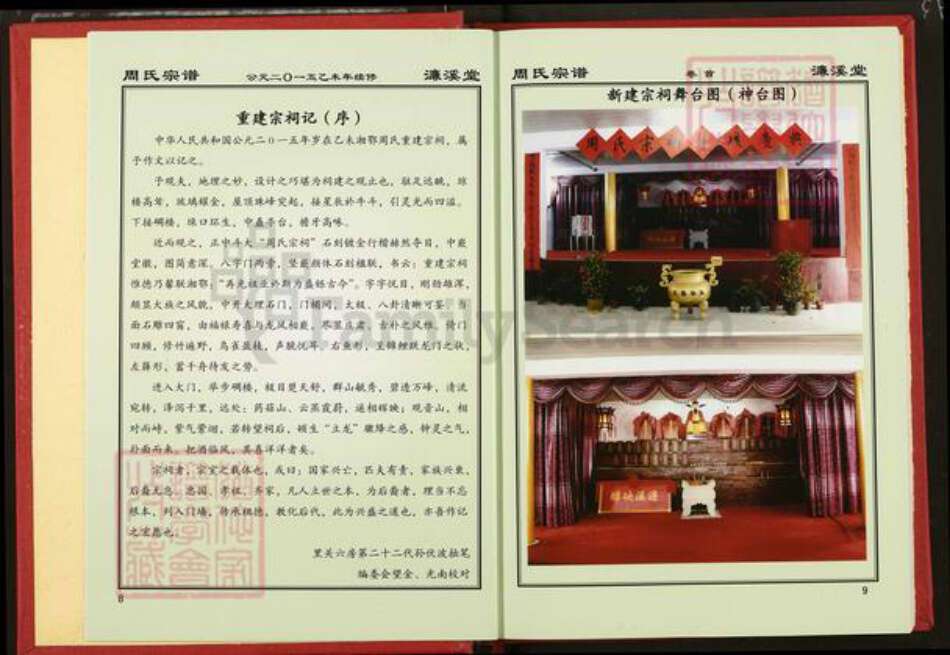 周氏宗谱 公元二〇一五乙未年续修 濂溪堂
重建宗祠记（序）
中华人民共和国公元二0一五年岁在乙未湘鄂周氏重建宗祠，属
予作文以记之。
予观夫，地理之妙，设计之巧堪为祠建之观止也，驻足远眺，琼
楼高耸，玻璃耀金，屋顶珠峰突起，接星辰於牛斗，引灵光而四溢。
下接碉楼，珠口环生，中矗亭台，檐牙高啄。
近而观之，正中斗大“周氏宗祠”石刻镀金行楷赫然夺目，中嵌
堂徽，图简意深。八字门两旁，竖嵌颜体石刻楹联，书云：重建宗祠
惟德乃馨联湘鄂；“再光祖业於斯为盛铄古今”。字字悦目，刚劲雄浑，
颇显大族之风貌，中开大理石门，门楣间，太极、八卦清晰可鉴。当
面石雕四窗，由福禄寿喜与龙凤相嵌，尽显庄肃、古朴之风雅。倚门
四顾，修竹遍野，鸟雀盈枝，声脆悦耳。右鱼形，呈锦鲤跃龙门之状，
左薜形，蓄千舟待发之势。
进入大门，举步碉楼，极目楚天舒，群山毓秀，碧透万峰，清流
宛转，泽泻千里，远处：药菇山、云蒸霞蔚，遥相辉映；观音山，相
对而峙，紫气萦洄。若转望祠后，顿生“立龙”骥绛之感，钟灵之气，
扑面而来，把酒临风，其喜洋洋者矣。
宗祠者，宗室之载体也，或曰：国家兴亡，匹夫有责，家族兴衰，
后裔尤忽。忠国、孝祖、齐家，凡人立世之本，为后裔者，理当不忘
根本，列入门墙，传承祖德，教化后代，此为兴盛之道也，亦吾作记
之宏愿也。
里关六房第二十二代孙伏波拙笔
编委会望金、光南校对
8
周氏宗谱 卷首 濂溪堂
新建宗祠舞台图（神台图）
9
FamilySearch